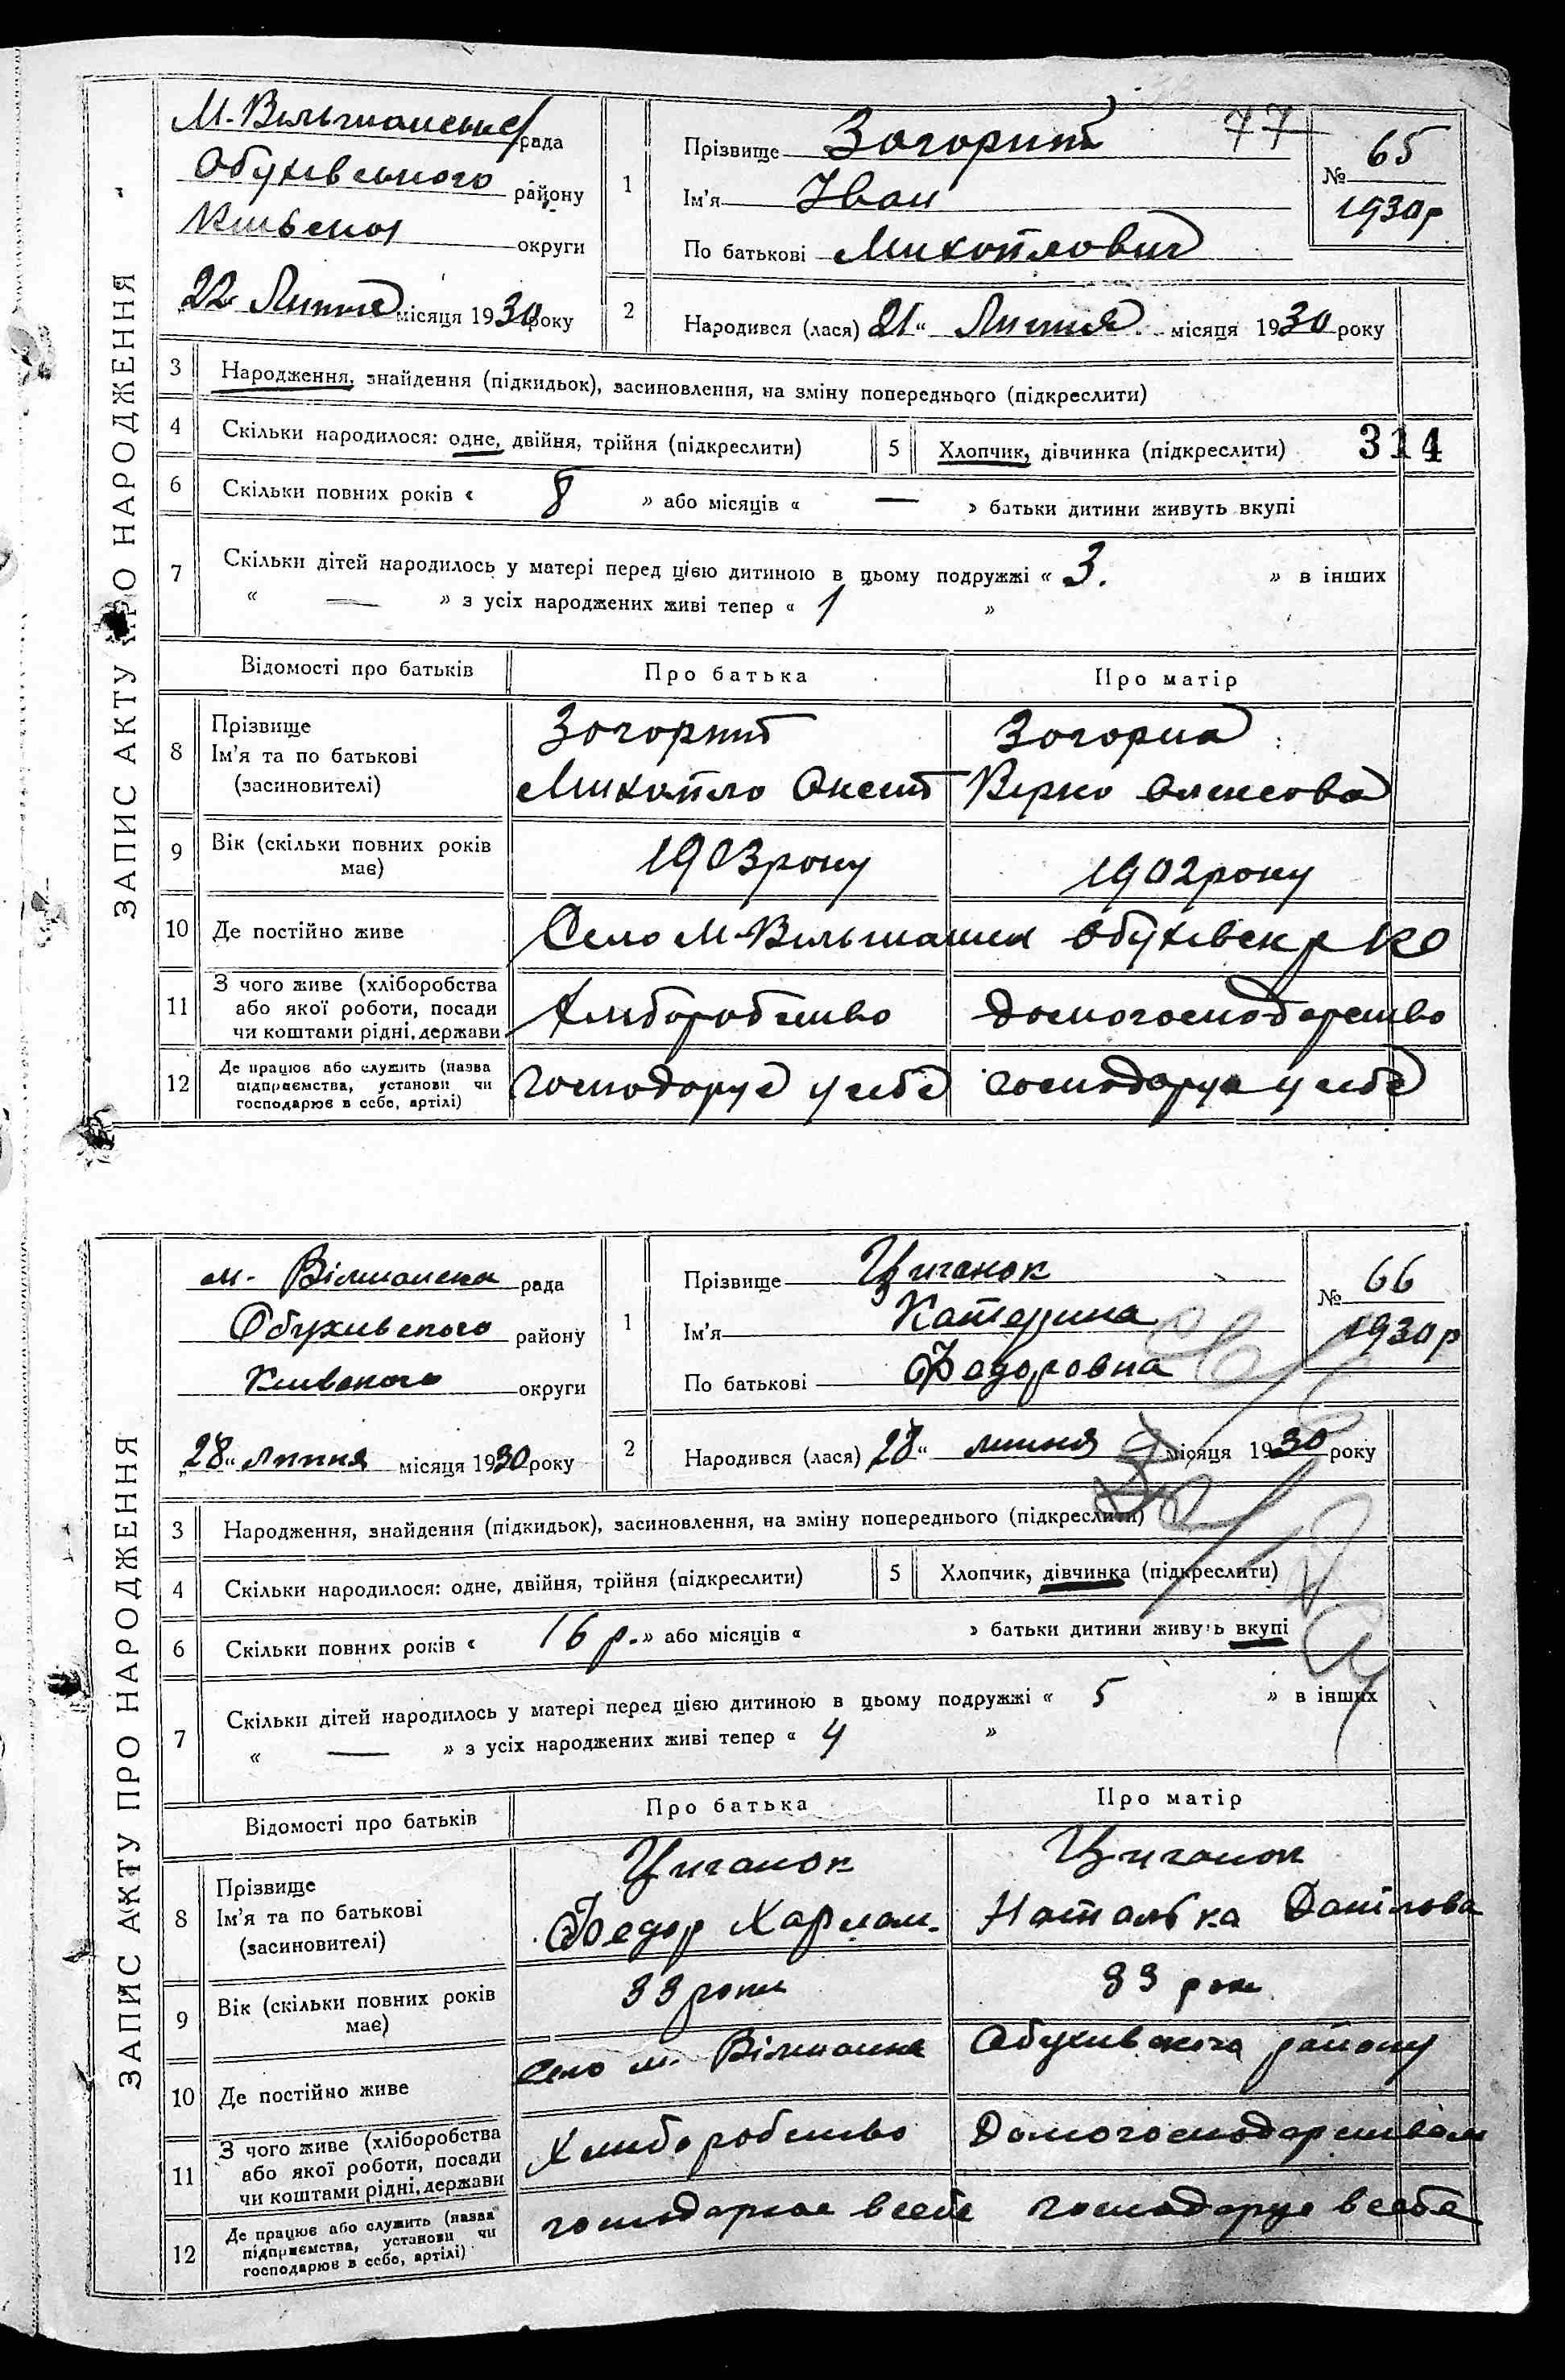 ЗАПИС АКТУ ПРО НАРОДЖЕННЯ
М. Вільшанська рада
Обухівського району
Київської округи
22 Липня місяця 1930 року
1
Прізвище Загорний
77
Ім'я Іван
По батькові Михойлович
№ 65
1930р
2
Народився (лася) 21 „ Липня місяця 1930 року
3 Народження, знайдення (підкидьок), засиновлення, на зміну попереднього (підкреслити)
4 Скільки народилося: одне, двійня, трійня (підкреслити)
5 Хлопчик, дівчинка (підкреслити)
314
6 Скільки повних років « 8 » або місяців « — » батьки дитини живуть вкупі
7 Скільки дітей народилось у матері перед цією дитиною в цьому подружжі « 3. » в інших
« — » з усіх народжених живі тепер « 1 »
Відомості про батьків Про батька Про матір
8 Прізвище
Ім'я та по батькові
(засиновителі)
Загорний
Михойло
Загорна
Вірка Олексова
9 Вік (скільки повних років має)
1903 року
1902 року
10 Де постійно живе
Село М-Вільшанка Обухівськ р КО
11 З чого живе (хліборобства
або якої роботи, посади
чи коштами рідні, держави
Хліборобство
домогосподарство
12 Де працює або служить (назва
підприємства, установи чи
господарює в себе, артілі)
господарує у себе
господарує у себе
ЗАПИС АКТУ ПРО НАРОДЖЕННЯ
м. Вілшанська рада
Обухивского району
Киивского округи
„28„ липня місяця 1930 року
1
Прізвище Циганок
Ім'я Катерина
По батькові Федоровна
№ 66
1930р
2
Народився (лася) 28 „ липня місяця 1930 року
3 Народження, знайдення (підкидьок), засиновлення, на зміну попереднього (підкреслити)
4 Скільки народилося: одне, двійня, трійня (підкреслити)
5 Хлопчик, дівчинка (підкреслити)
6 Скільки повних років « 16 р. » або місяців « » батьки дитини живуть вкупі
7 Скільки дітей народилось у матері перед цією дитиною в цьому подружжі « 5 » в інших
« — » з усіх народжених живі тепер « 4 »
Відомості про батьків Про батька Про матір
8 Прізвище
Ім'я та по батькові
(засиновителі)
Циганок
Федор Харлам.
Циганок
Наталька Данілова
9 Вік (скільки повних років має)
33 роки
33 роки
10 Де постійно живе
село м. Вілшанка Обухивского району
11 З чого живе (хліборобства
або якої роботи, посади
чи коштами рідні, держави
Хлиборобство
Домогосподарством
12 Де працює або служить (назва
підприємства, установи чи
господарює в себе, артілі)
господарює в себе
господарує в себе